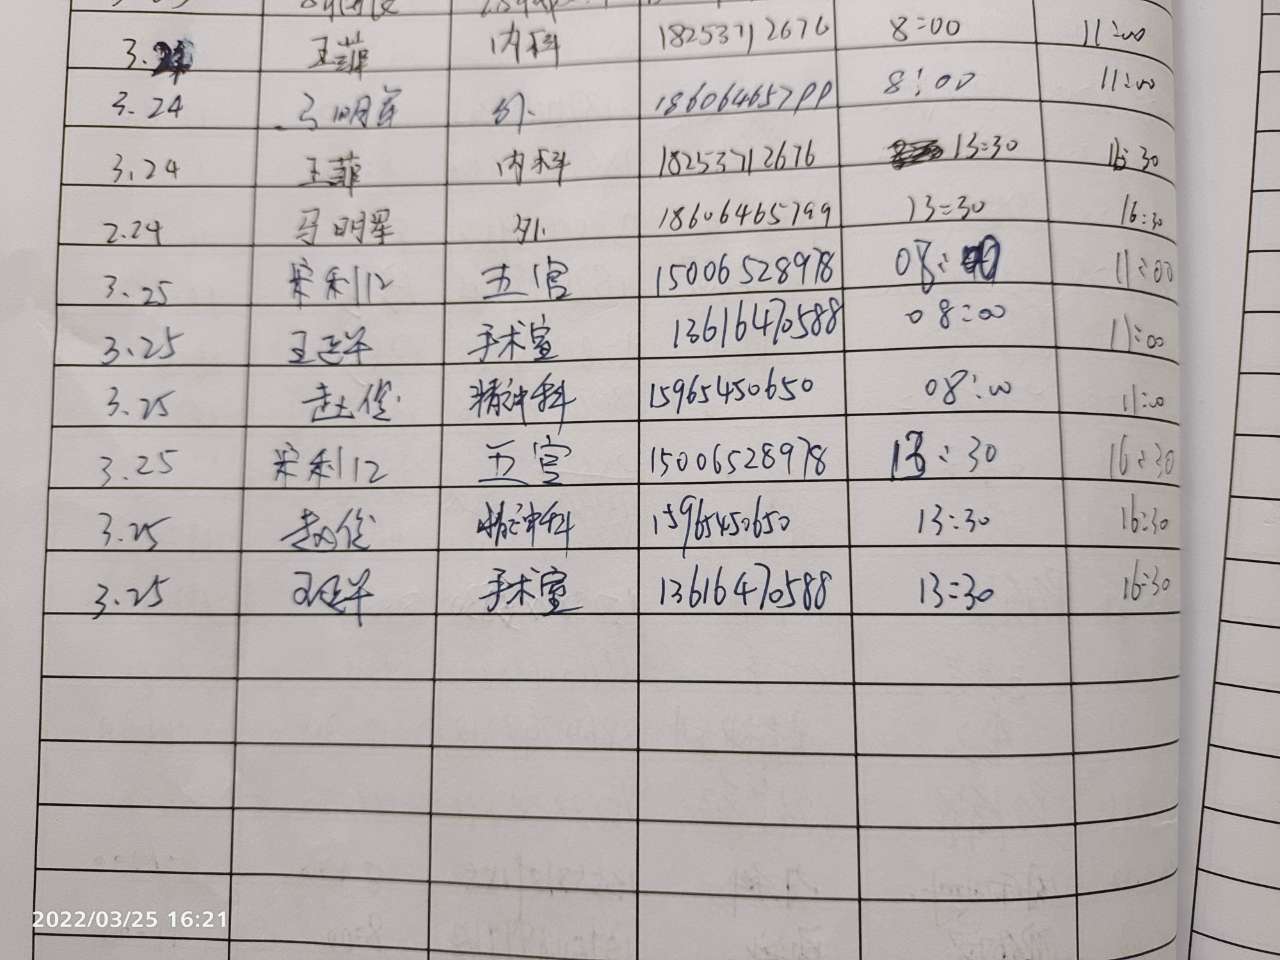 3.24 王菲 内科 18253712676 8:00 11:00
3.24 马明军 外 18606465799 8:00 11:00
3.24 王菲 内科 18253712676 13:30 16:30
2.24 马明军 外 18606465799 13:30 16:30
3.25 宋利12 五官 15006528978 08:00 11:00
3.25 王延平 手术室 13616470588 08:00 11:00
3.25 赵俊 精神科 15965450650 08:00 11:00
3.25 宋利12 五官 15006528978 13:30 16:30
3.25 赵俊 精神科 15965450650 13:30 16:30
3.25 王延平 手术室 13616470588 13:30 16:30
2022/03/25 16:21